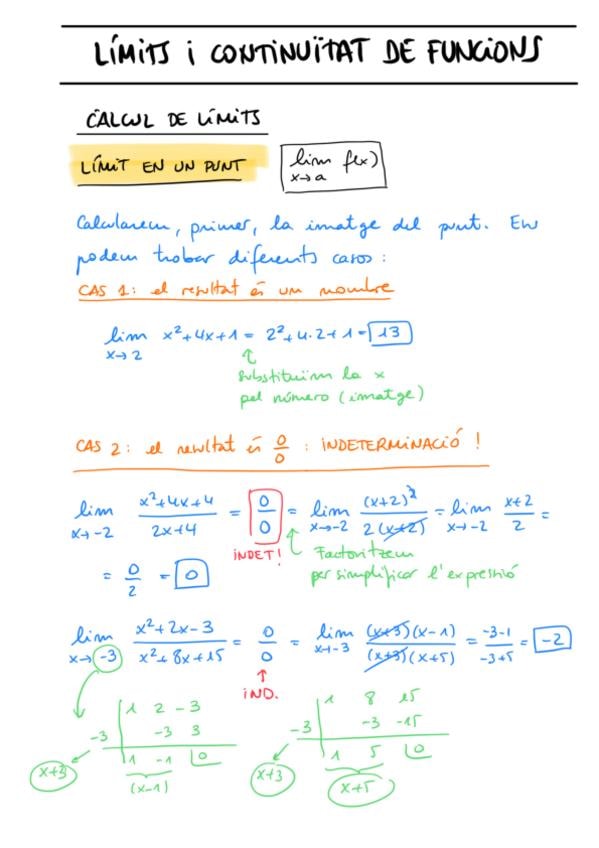 LÍMITS i CONTINUÏTAT DE FUNCIONS
CÀLCUL DE LÍMITS
LÍMIT EN UN PUNT
lim f(x)
x→a
Calcularem, primer, la imatge del punt. Ens
podem trobar diferents casos:
CAS 1: el resultat és un nombre
lim x²+4x+1 = 2²+4·2+1 = 13
x→2
Substituïm la x
pel número (imatge)
CAS 2: el resultat és 0/0 : INDETERMINACIÓ!
lim (x²+4x+4)/(2x+4) = 0/0 = lim (x+2)²/(2(x+2)) = lim (x+2)/2 =
x→-2 x→-2 x→-2
INDET!
Factoritzem
per simplificar l'expressió
= 0/2 = 0
lim (x²+2x-3)/(x²+8x+15) = 0/0 = lim ((x+3)(x-1))/((x+3)(x+5)) = (-3-1)/(-3+5) = -2
x→-3 x→-3
IND.
1 2 -3
-3 -3 3
1 -1 0
x+3
(x-1)
1 8 15
-3 -3 -15
1 5 0
x+3
x+5